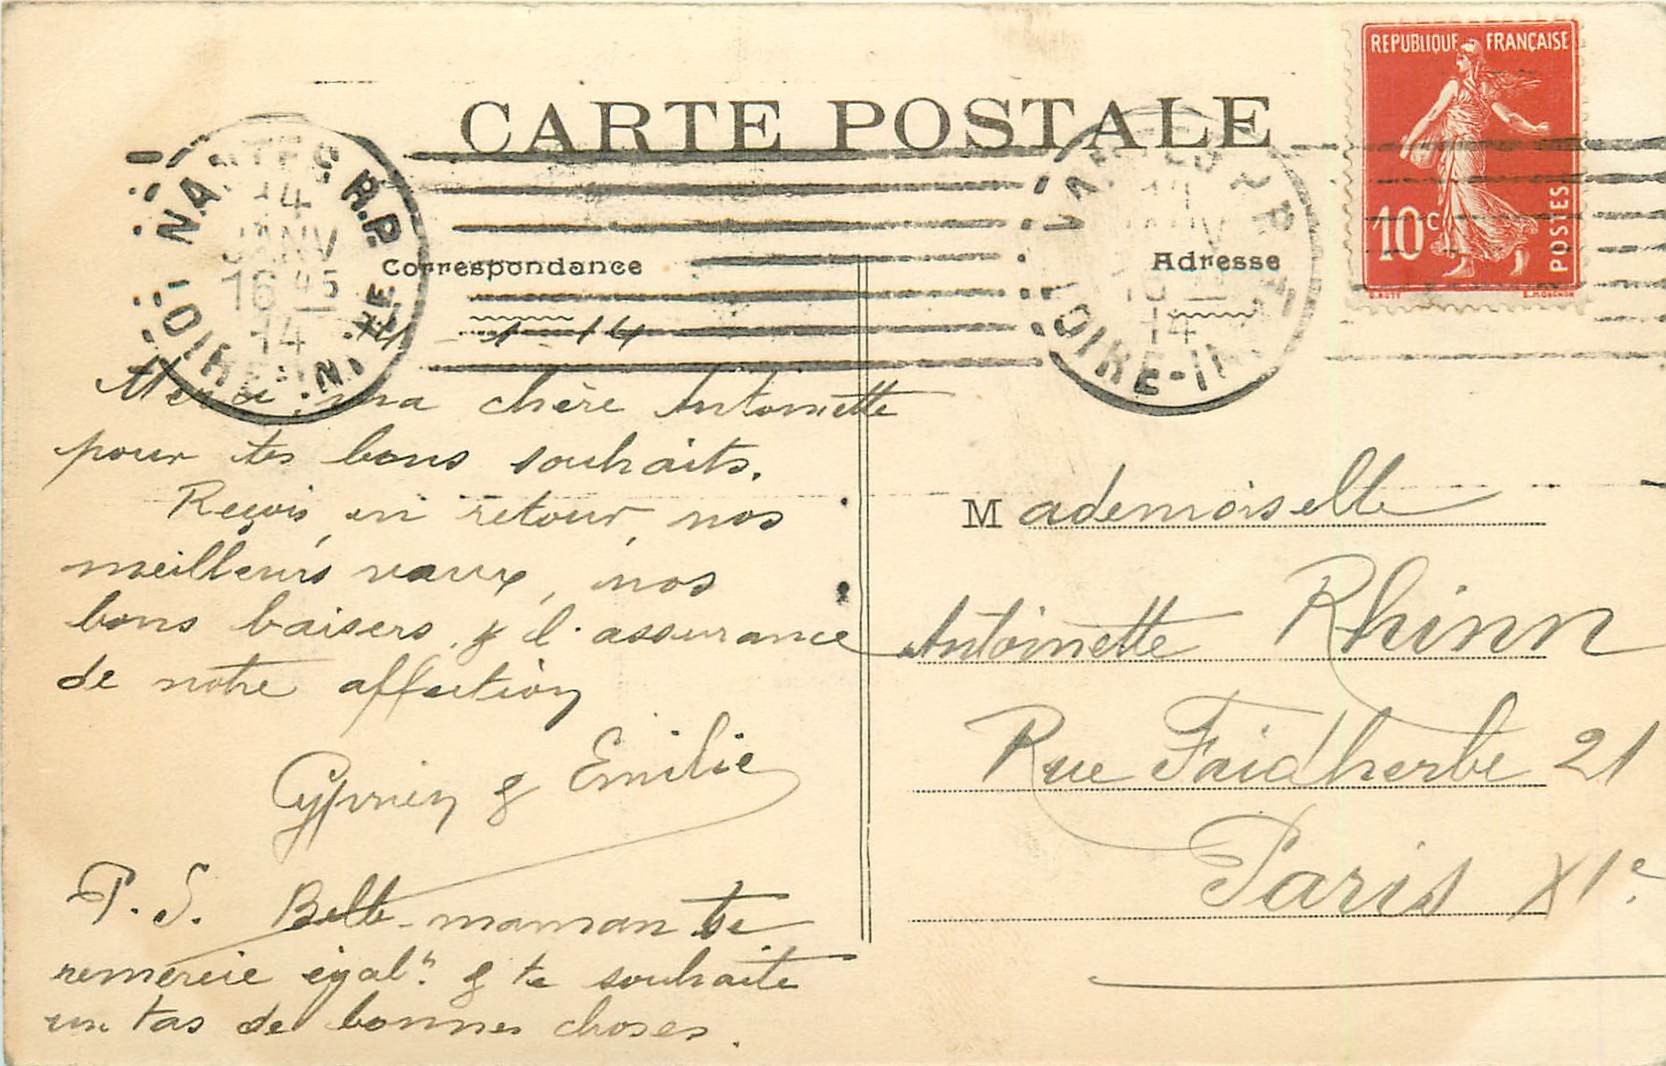 CARTE POSTALE
REPUBLIQUE FRANÇAISE
10c
POSTES
NANTES R.P.
14
JANV
16 45
14
LOIRE-INF
Correspondance
Adresse
1 - 14
Merci, ma chère Antoinette
pour tes bons souhaits.
Reçois, en retour, nos
meilleurs vœux, nos
bons baisers & l'assurance
de notre affection
Cyprien & Emilie
P. S. Belle-maman te
remercie égalt. & te souhaite
un tas de bonnes choses.
Mademoiselle
Antoinette Rhinn
Rue Faidherbe 21
Paris XIe.